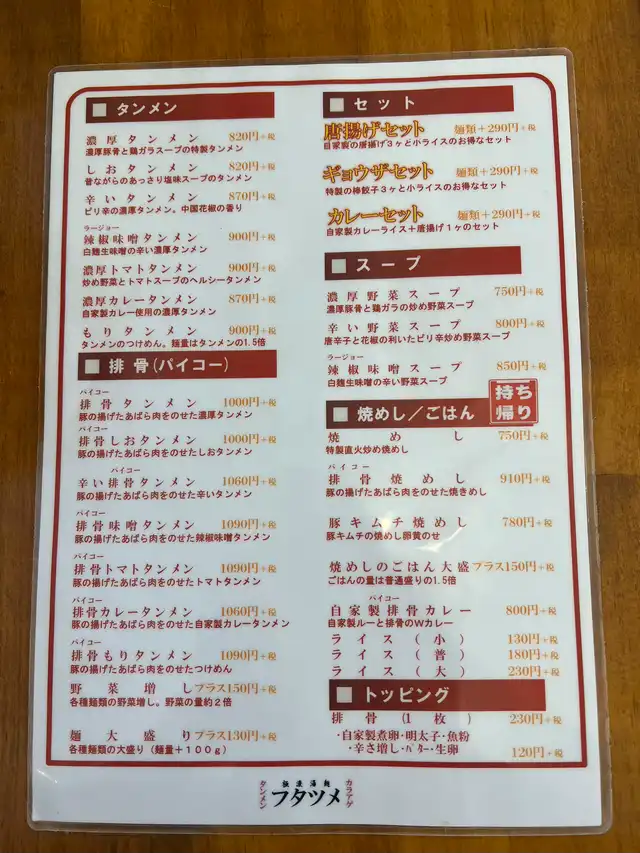 タンメン
濃厚タンメン 820円+税
濃厚豚骨と鶏ガラスープの特製タンメン
しおタンメン 820円+税
昔ながらのあっさり塩味スープのタンメン
辛いタンメン 870円+税
ピリ辛の濃厚タンメン。中国花椒の香り
ラージョー
辣椒味噌タンメン 900円+税
白麹生味噌の辛い濃厚タンメン
濃厚トマトタンメン 900円+税
炒め野菜とトマトスープのヘルシータンメン
濃厚カレータンメン 870円+税
自家製カレー使用の濃厚タンメン
もりタンメン 900円+税
タンメンのつけめん。麺量はタンメンの1.5倍
排骨(パイコー)
パイコー
排骨タンメン 1000円+税
豚の揚げたあばら肉をのせた濃厚タンメン
パイコー
排骨しおタンメン 1000円+税
豚の揚げたあばら肉をのせたしおタンメン
パイコー
辛い排骨タンメン 1060円+税
豚の揚げたあばら肉をのせた辛いタンメン
パイコー
排骨味噌タンメン 1090円+税
豚の揚げたあばら肉をのせた辣椒味噌タンメン
パイコー
排骨トマトタンメン 1090円+税
豚の揚げたあばら肉をのせたトマトタンメン
パイコー
排骨カレータンメン 1060円+税
豚の揚げたあばら肉をのせた自家製カレータンメン
パイコー
排骨もりタンメン 1090円+税
豚の揚げたあばら肉をのせたつけめん
野菜増し プラス150円+税
各種麺類の野菜増し。野菜の量約2倍
麺大盛り プラス130円+税
各種麺類の大盛り(麺量+100g)
セット
唐揚げセット 麺類+290円+税
自家製の唐揚げ3ヶと小ライスのお得なセット
ギョウザセット 麺類+290円+税
特製の棒餃子3ヶと小ライスのお得なセット
カレーセット 麺類+290円+税
自家製カレーライス+唐揚げ1ヶのセット
スープ
濃厚野菜スープ 750円+税
濃厚豚骨と鶏ガラの炒め野菜スープ
辛い野菜スープ 800円+税
唐辛子と花椒の利いたピリ辛炒め野菜スープ
ラージョー
辣椒味噌スープ 850円+税
白麹生味噌の辛い野菜スープ
焼めし/ごはん
持ち
帰り
焼めし 750円+税
特製直火炒め焼めし
パイコー
排骨焼めし 910円+税
豚の揚げたあばら肉をのせた焼きめし
豚キムチ焼めし 780円+税
豚キムチの焼めし卵黄のせ
焼めしのごはん大盛 プラス150円+税
ごはんの量は普通盛りの1.5倍
パイコー
自家製排骨カレー 800円+税
自家製ルーと排骨のWカレー
ライス(小) 130円+税
ライス(普) 180円+税
ライス(大) 230円+税
トッピング
排骨(1枚) 230円+税
・自家製煮卵・明太子・魚粉
・辛さ増し・バター・生卵 120円+税
タンメン
フタツメ
カラアゲ